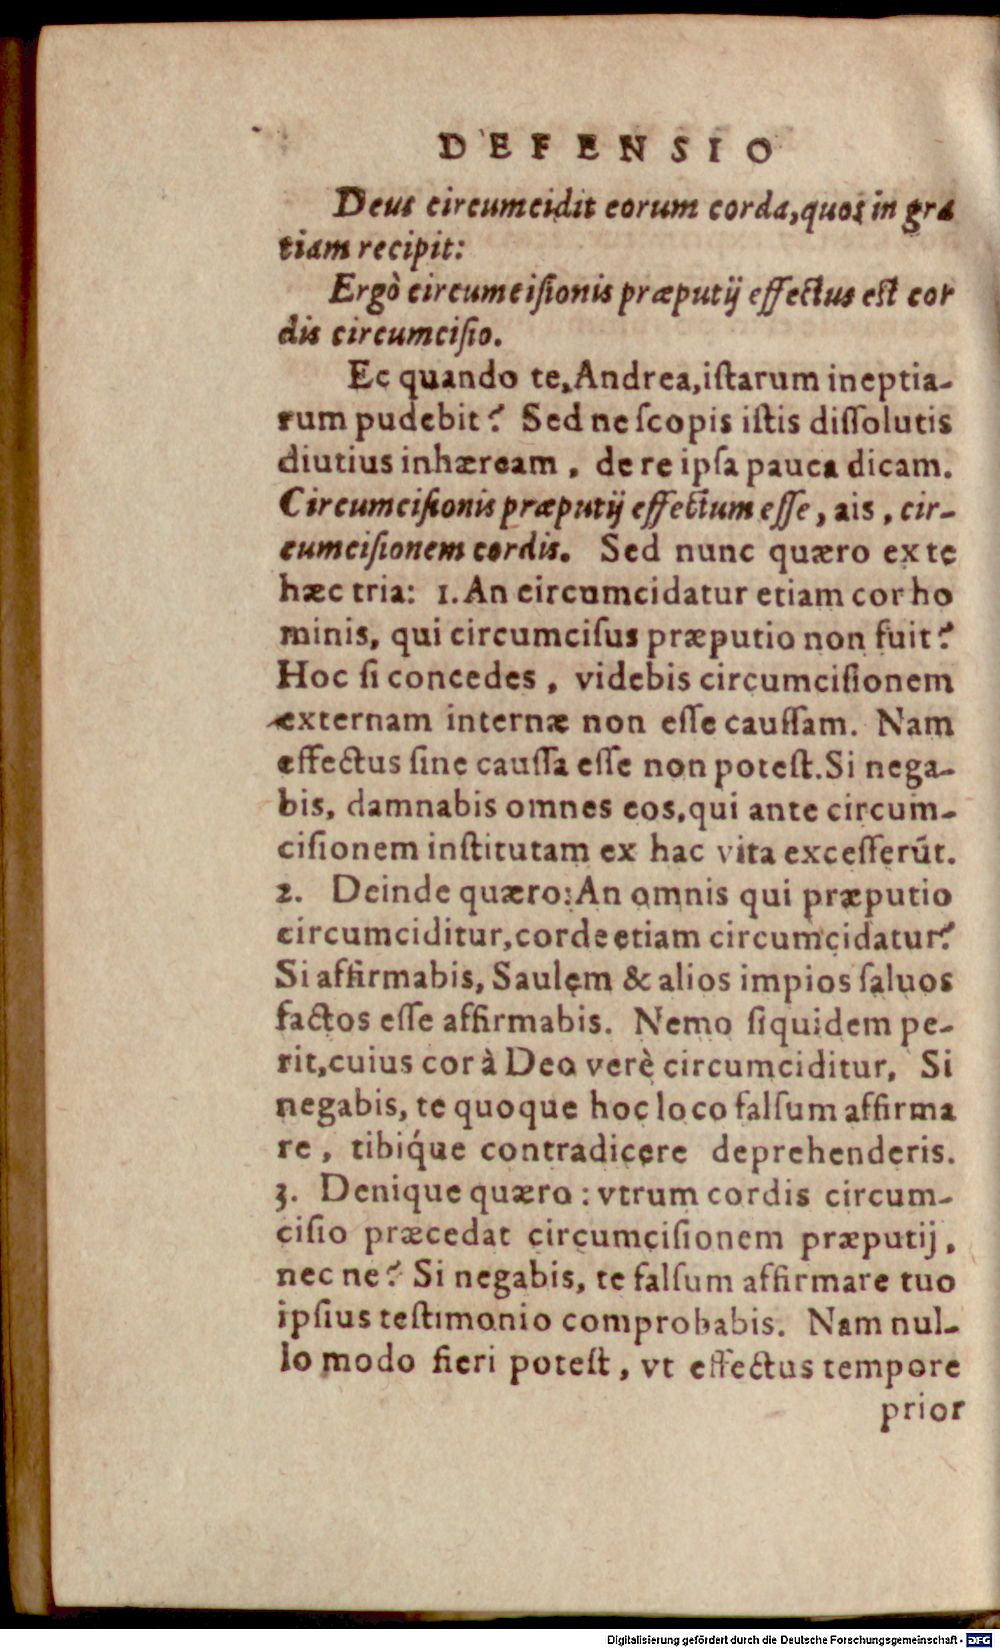 DEFENSIO
Deus circumcidit eorum corda, quos in gra
tiam recipit:
Ergò circumciſionis præputij effectus est cor
dis circumciſio.
Ec quando te, Andrea, iſtarum ineptia-
rum pudebit? Sed ne ſcopis iſtis diſſolutis
diutius inhæream, de re ipſa pauca dicam.
Circumciſionis præputij effectum eſſe, ais, cir-
cumciſionem cordis. Sed nunc quæro ex te
hæc tria: 1. An circumcidatur etiam cor ho
minis, qui circumciſus præputio non fuit?
Hoc ſi concedes, videbis circumciſionem
externam internæ non eſſe cauſſam. Nam
effectus ſine cauſſa eſſe non poteſt. Si nega-
bis, damnabis omnes eos, qui ante circum-
ciſionem inſtitutam ex hac vita exceſſerũt.
2. Deinde quæro: An omnis qui præputio
circumciditur, corde etiam circumcidatur?
Si affirmabis, Saulem & alios impios ſaluos
factos eſſe affirmabis. Nemo ſiquidem pe-
rit, cuius cor à Deo verè circumciditur, Si
negabis, te quoque hoc loco falſum affirma
re, tibiq́ue contradicere deprehenderis.
3. Denique quæro: vtrum cordis circum-
ciſio præcedat circumciſionem præputij,
nec ne? Si negabis, te falſum affirmare tuo
ipſius teſtimonio comprobabis. Nam nul-
lo modo fieri poteſt, vt effectus tempore
prior
Digitalisierung gefördert durch die Deutsche Forschungsgemeinschaft - DFG